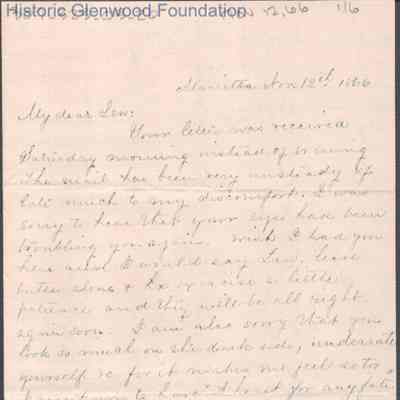 Historic Glenwood Foundation
Nov 12, 66 1/6
Marietta Nov 12th 1866
My dear Lew:
Your letter was received
Saturday morning instead of evening
The mail has been very unsteady of
late much to my discomfort. I was
sorry to hear that your eyes have been
troubling you again. Wish I had you
here and I would say Lew, leave
alone & exercise a little
patience and they will be all right
again soon. I am also sorry that you
look so much on the dark side, underrate
yourself so for it makes me feel
want you to have for any